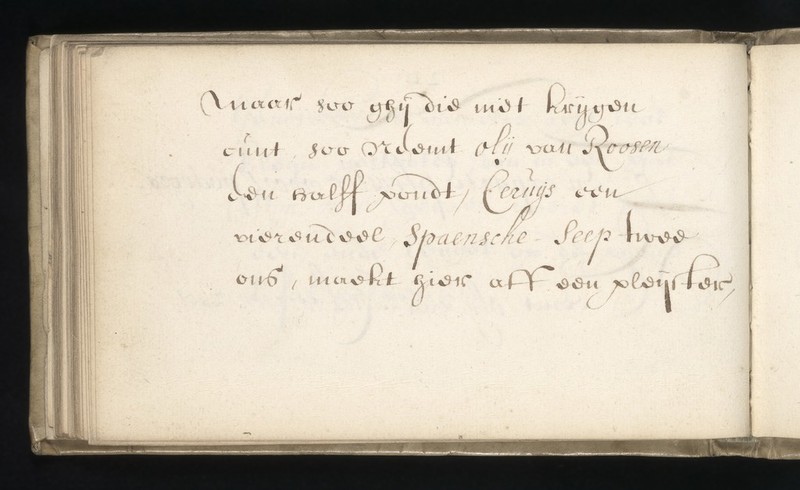 Maar soo ghij die niet krijgen
cunt, soo Neemt olij van Roosen
een halff pondt, Ceruijs een
vierendeel, Spaensche Seep twee
ons, maekt hier aff een pleijster,